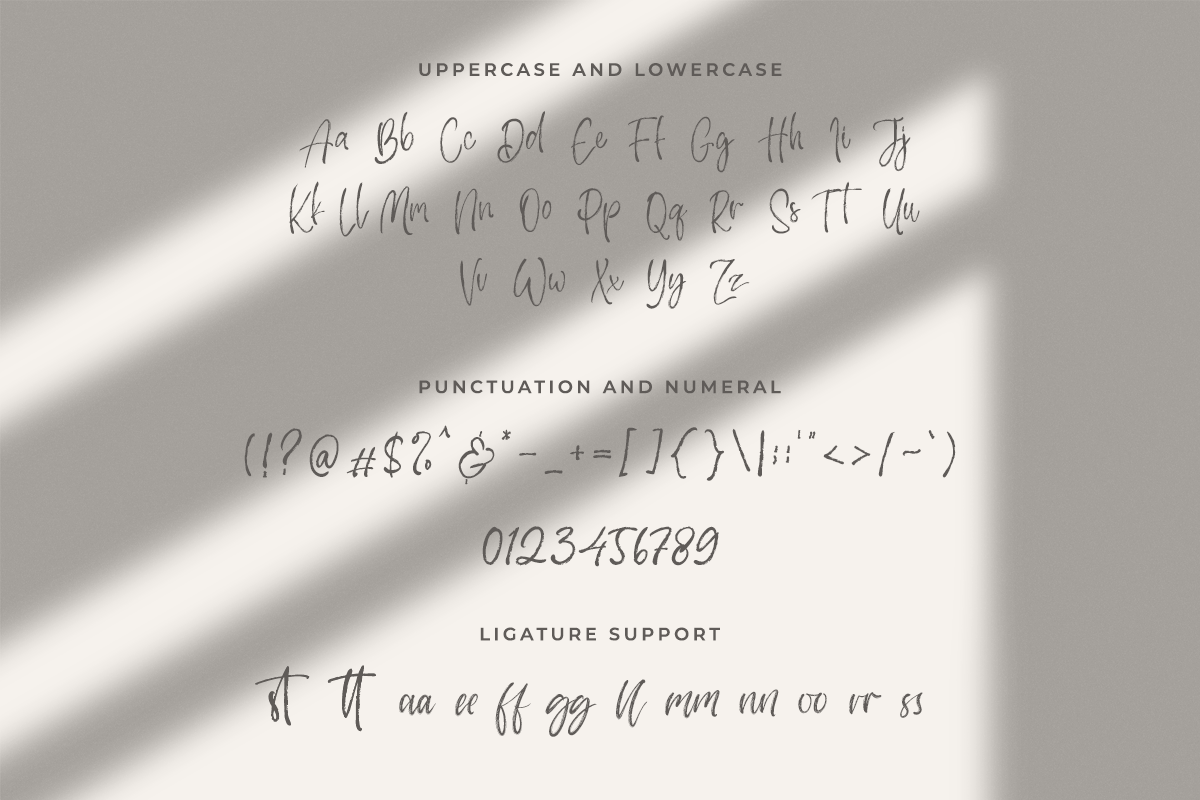 UPPERCASE AND LOWERCASE
Aa Bb Cc Dd Ee Ff Gg Hh Ii Jj
Kk Ll Mm Nn Oo Pp Qq Rr Ss Tt Uu
Vv Ww Xx Yy Zz
PUNCTUATION AND NUMERAL
(!?@#$%^&*-_+=[]{}\|:;'"<>/~`)
0123456789
LIGATURE SUPPORT
st tt aa ee ff gg ll mm nn oo rr ss